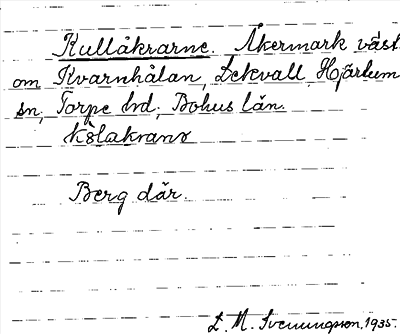 Kullåkrarne. Åkermark väst
om Kvarnhålan, Lekvall, Hjärtum
sn, Torpe hd, Bohus län.
kǒ̀lakranɒ
Berg där.
L. M. Svenungsson, 1935.